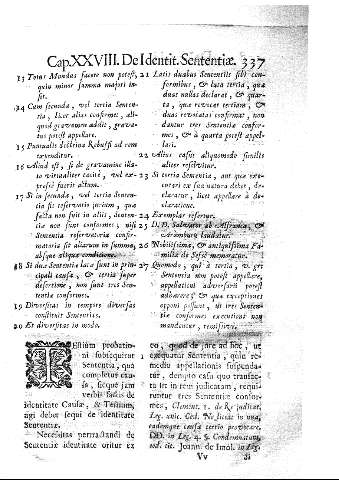 Cap. XXVIII. De Identit. Sententiæ. 337
13 Totus Mundus facere non potest,
quin minor summa majori insit.
14 Cum secunda, vel tertia Sententia,
licet alias confirmet, aliquod
gravamen addit, gravatus
potest appellare.
15 Punctualis doctrina Rebuffi ad rem
expenditur.
16 Aliud est, si de gravamine illato
virtualiter tacitè, vel expressè
fuerit actum.
17 Si in secunda, vel tertia Sententia
fit reservatio jurium, quæ
facta non fuit in aliis, Sententiæ
non sunt conformes; nisi
Sententia reservatoria confirmatoria
sit aliarum in summa,
absque aliqua conditione.
18 Si duæ Sententiæ latæ sunt in principali
causa, & tertia super
desertione, non sunt tres Sententiæ
conformes.
19 Diversitas in tempore diversas
constituit Sententias.
20 Et diversitas in modo.
21 Latis duabus Sententiis sibi conformibus,
& lata tertia, quæ
duas nullas declarat, & quarta,
quæ revocat tertiam, &
duas revocatas confirmat, non
dantur tres Sententiæ conformes,
& à quarta potest appellari.
22 Alius casus aliquomodo similis
aliter resolvitur.
23 Si tertia Sententia, aut que exequatur
ex sua natura debet, declaratur,
licet appellare à declaratione.
24 Exemplar refertur.
25 D. D. Salvator ab
laudatur.
26 Nobilissimæ, & antiquissimæ Familiæ
de Sessè memoratur.
27 Quomodo, qui à tertia, vel
Sententia non potest appellare,
appellationi adversarii potest
adhærere; & quæ exceptiones
opponi possunt, ut tres Sententiæ
conformes executioni non
mandentur, remissivè.
TEstium probationi
subsequitur
Sententia, qua
completur causa,
sicque jam
verbis factis de
identitate Causæ, & Testium,
agi debet sequi de identitate
Sententiæ.
Necessitas pertractandi de
Sententiæ identitate oritur ex
eo, quod de jure ad hoc, ut
exequatur Sententia, quin remedio
appellationis suspendatur,
dempto casu quo transeat
sit in rem judicatam, requiruntur
tres Sententiæ conformes,
Clement. 1. de Re judicat.
Leg. unic. Cod. Ne liceat in una,
eademque causa tertio provocare.
DD. in Leg. 4. §. Condemnatum,
eod. tit. Joann. de Imol. in Leg.
Vv
Si